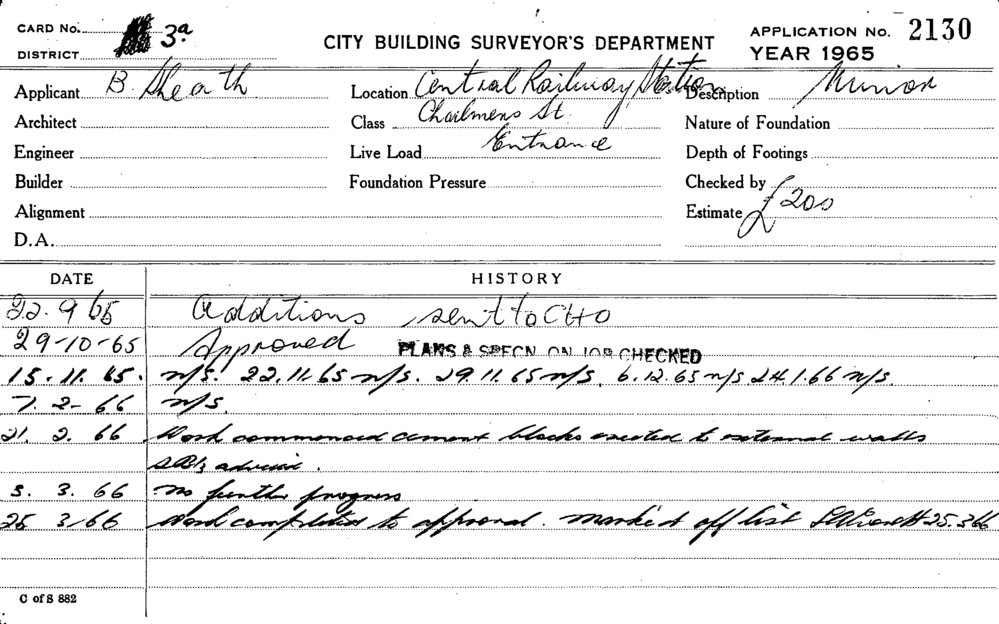 CARD No. 3a
DISTRICT
CITY BUILDING SURVEYOR'S DEPARTMENT
APPLICATION No. 2130
YEAR 1965
Applicant B. Sheath
Location Central Railway Station
Description Minor
Architect
Class Chalmers St.
Nature of Foundation
Engineer
Live Load Entrance
Depth of Footings
Builder
Foundation Pressure
Checked by
Alignment
Estimate £200
D.A.
DATE HISTORY
22.9.65 Additions sent to CHO
29-10-65 Approved PLANS & SPECN ON JOB CHECKED
15.11.65. n/s. 22.11.65 n/s. 29.11.65 n/s. 6.12.65 n/s 24.1.66 n/s
7.2-66 n/s.
21.2.66 Work commenced cement blocks erected to external walls
3.3.66 No further progress
25.3.66 Work completed to approval. Marked off list 25.3.66
C of S 882